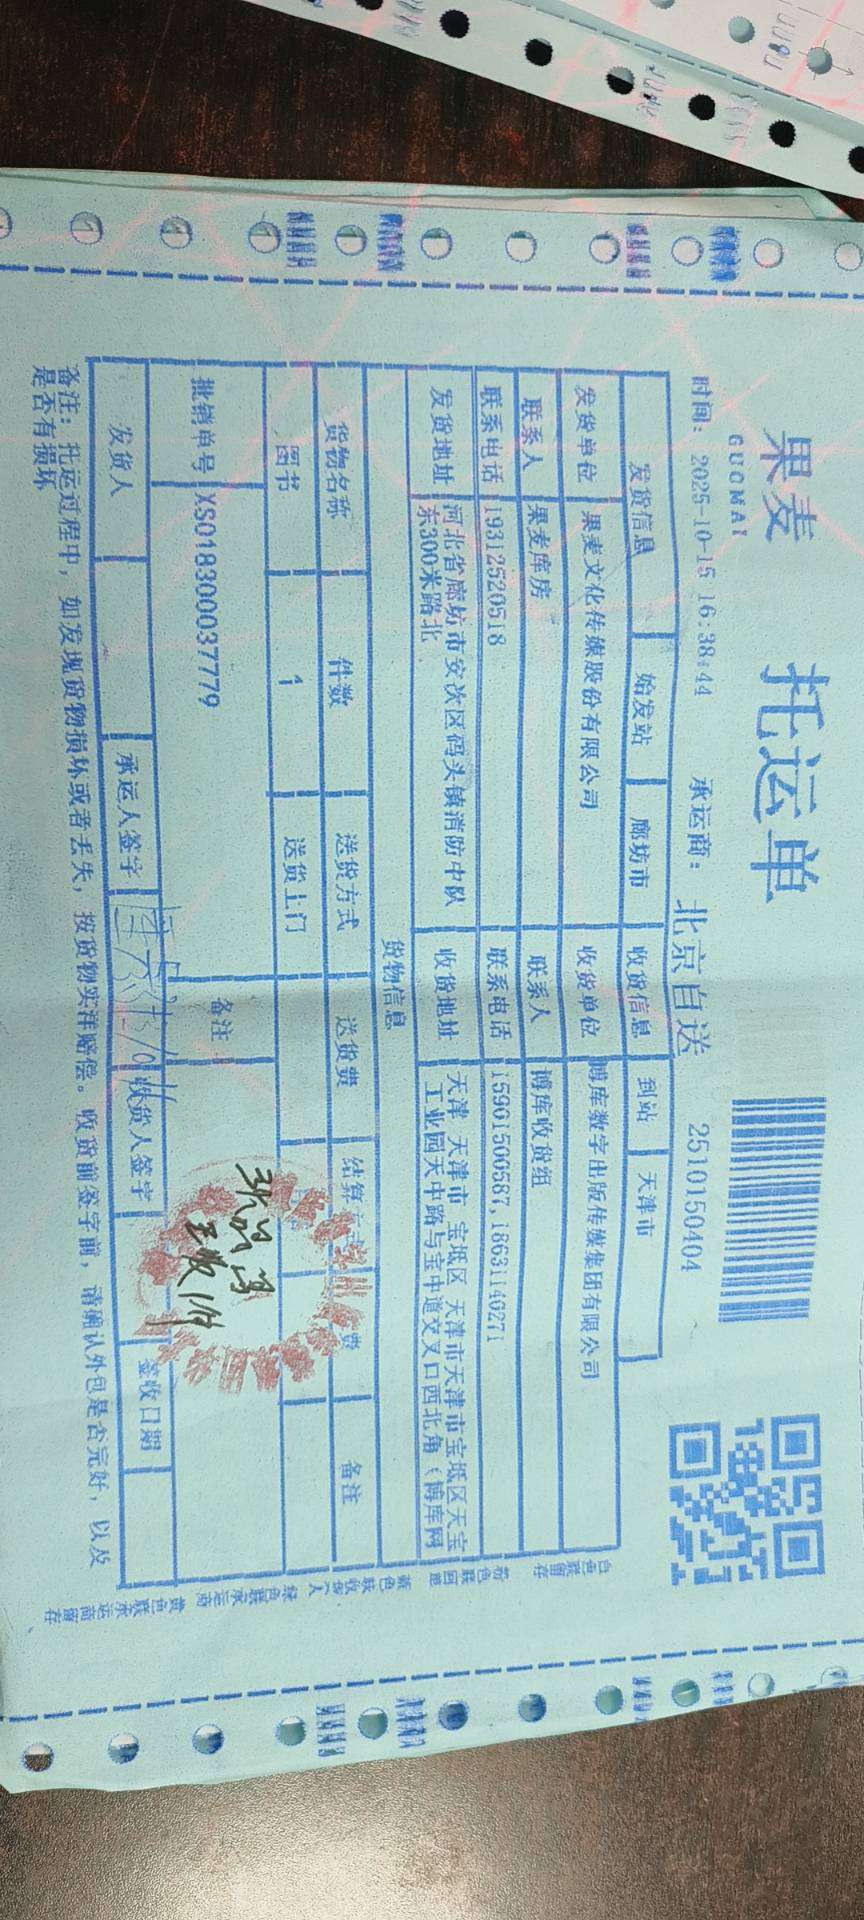 果麦
GUOMAI
托运单
时间： 2025-10-15 16:38:44 承运商： 北京自送 2510150404
发货信息 始发站 廊坊市 收货信息 到站 天津市
发货单位 果麦文化传媒股份有限公司 收货单位 博库数字出版传媒集团有限公司
联系人 果麦库房 联系人 博库收货组
联系电话 19312520518 联系电话 15901500587,18631140271
发货地址 河北省廊坊市安次区码头镇消防中队东300米路北 收货地址 天津 天津市 宝坻区 天津市天津市宝坻区天宝工业园天中路与宝中道交叉口西北角（博库网
货物信息
货物名称 件数 送货方式 送货费 结算方式 费 备注
图书 1 送货上门
批销单号 XS018300037779 备注
发货人 承运人签字 收货人签字 签收日期
备注：托运过程中，如发现货物损坏或者丢失，按货物实洋赔偿。收货前签字前，请确认外包是否完好，以及
是否有损坏
白色联留存
粉色联回库
蓝色联收货人
绿色联承运商
黄色联承运商留存